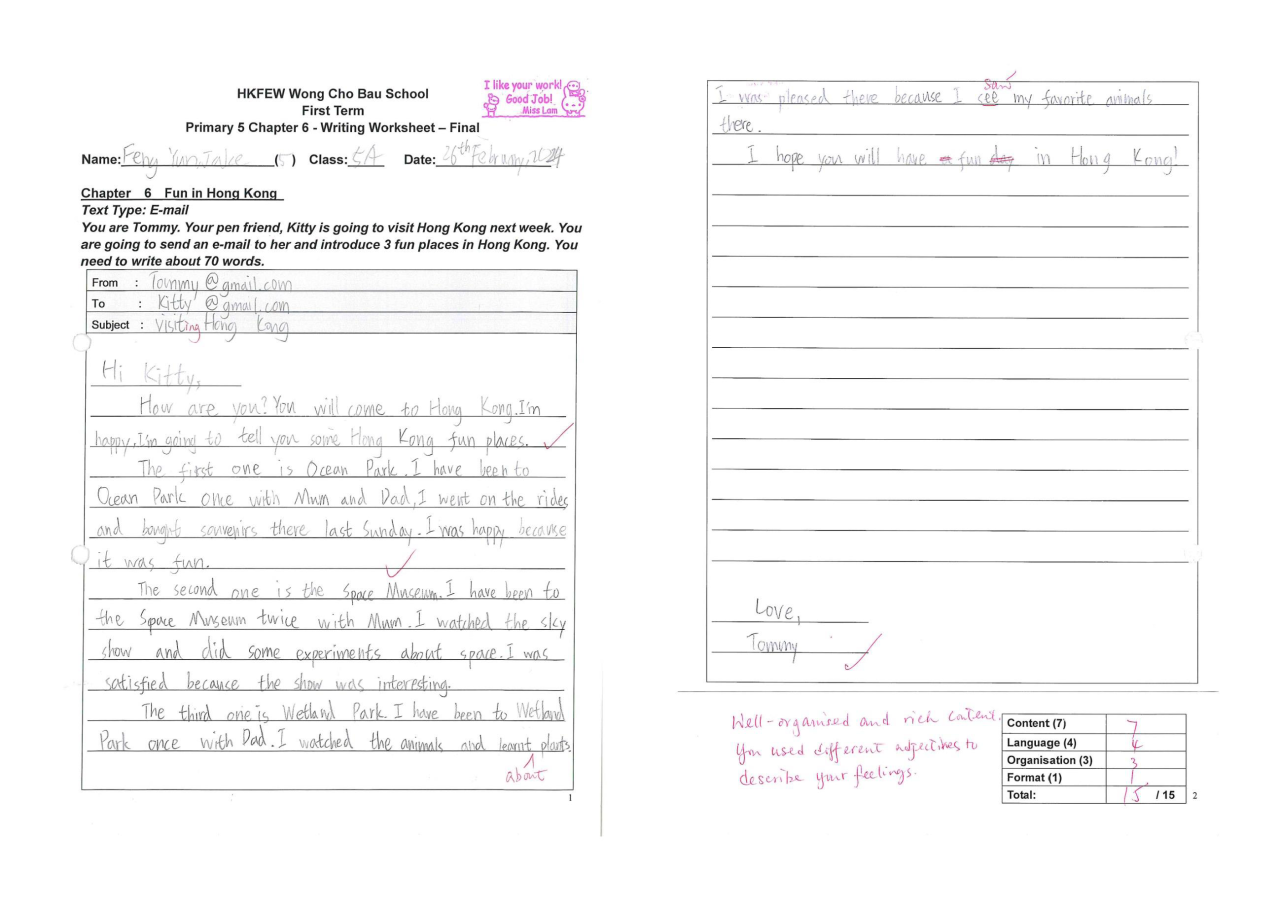 I like your work!
Good Job!
Miss Lam
HKFEW Wong Cho Bau School
First Term
Primary 5 Chapter 6 - Writing Worksheet – Final
Name: Feng Yun, Jake (5) Class: 5A Date: 26th February, 2024
Chapter 6 Fun in Hong Kong
Text Type: E-mail
You are Tommy. Your pen friend, Kitty is going to visit Hong Kong next week. You
are going to send an e-mail to her and introduce 3 fun places in Hong Kong. You
need to write about 70 words.
From : Tommy@gmail.com
To : Kitty@gmail.com
Subject : Visiting Hong Kong
Hi Kitty,
How are you? You will come to Hong Kong. I'm
happy. I'm going to tell you some Hong Kong fun places.
The first one is Ocean Park. I have been to
Ocean Park once with Mum and Dad, I went on the rides
and bought souvenirs there last Sunday. I was happy because
it was fun.
The second one is the Space Museum. I have been to
the Space Museum twice with Mum. I watched the sky
show and did some experiments about space. I was
satisfied because the show was interesting.
The third one is Wetland Park. I have been to Wetland
Park once with Dad. I watched the animals and learnt plants.
about
1
saw
I was pleased there because I see my favorite animals
there.
I hope you will have a fun day in Hong Kong!
Love,
Tommy
Well-organised and rich content.
You used different adjectives to
describe your feelings.
Content (7) 7
Language (4) 4
Organisation (3) 3
Format (1) 1
Total: 15 / 15
2